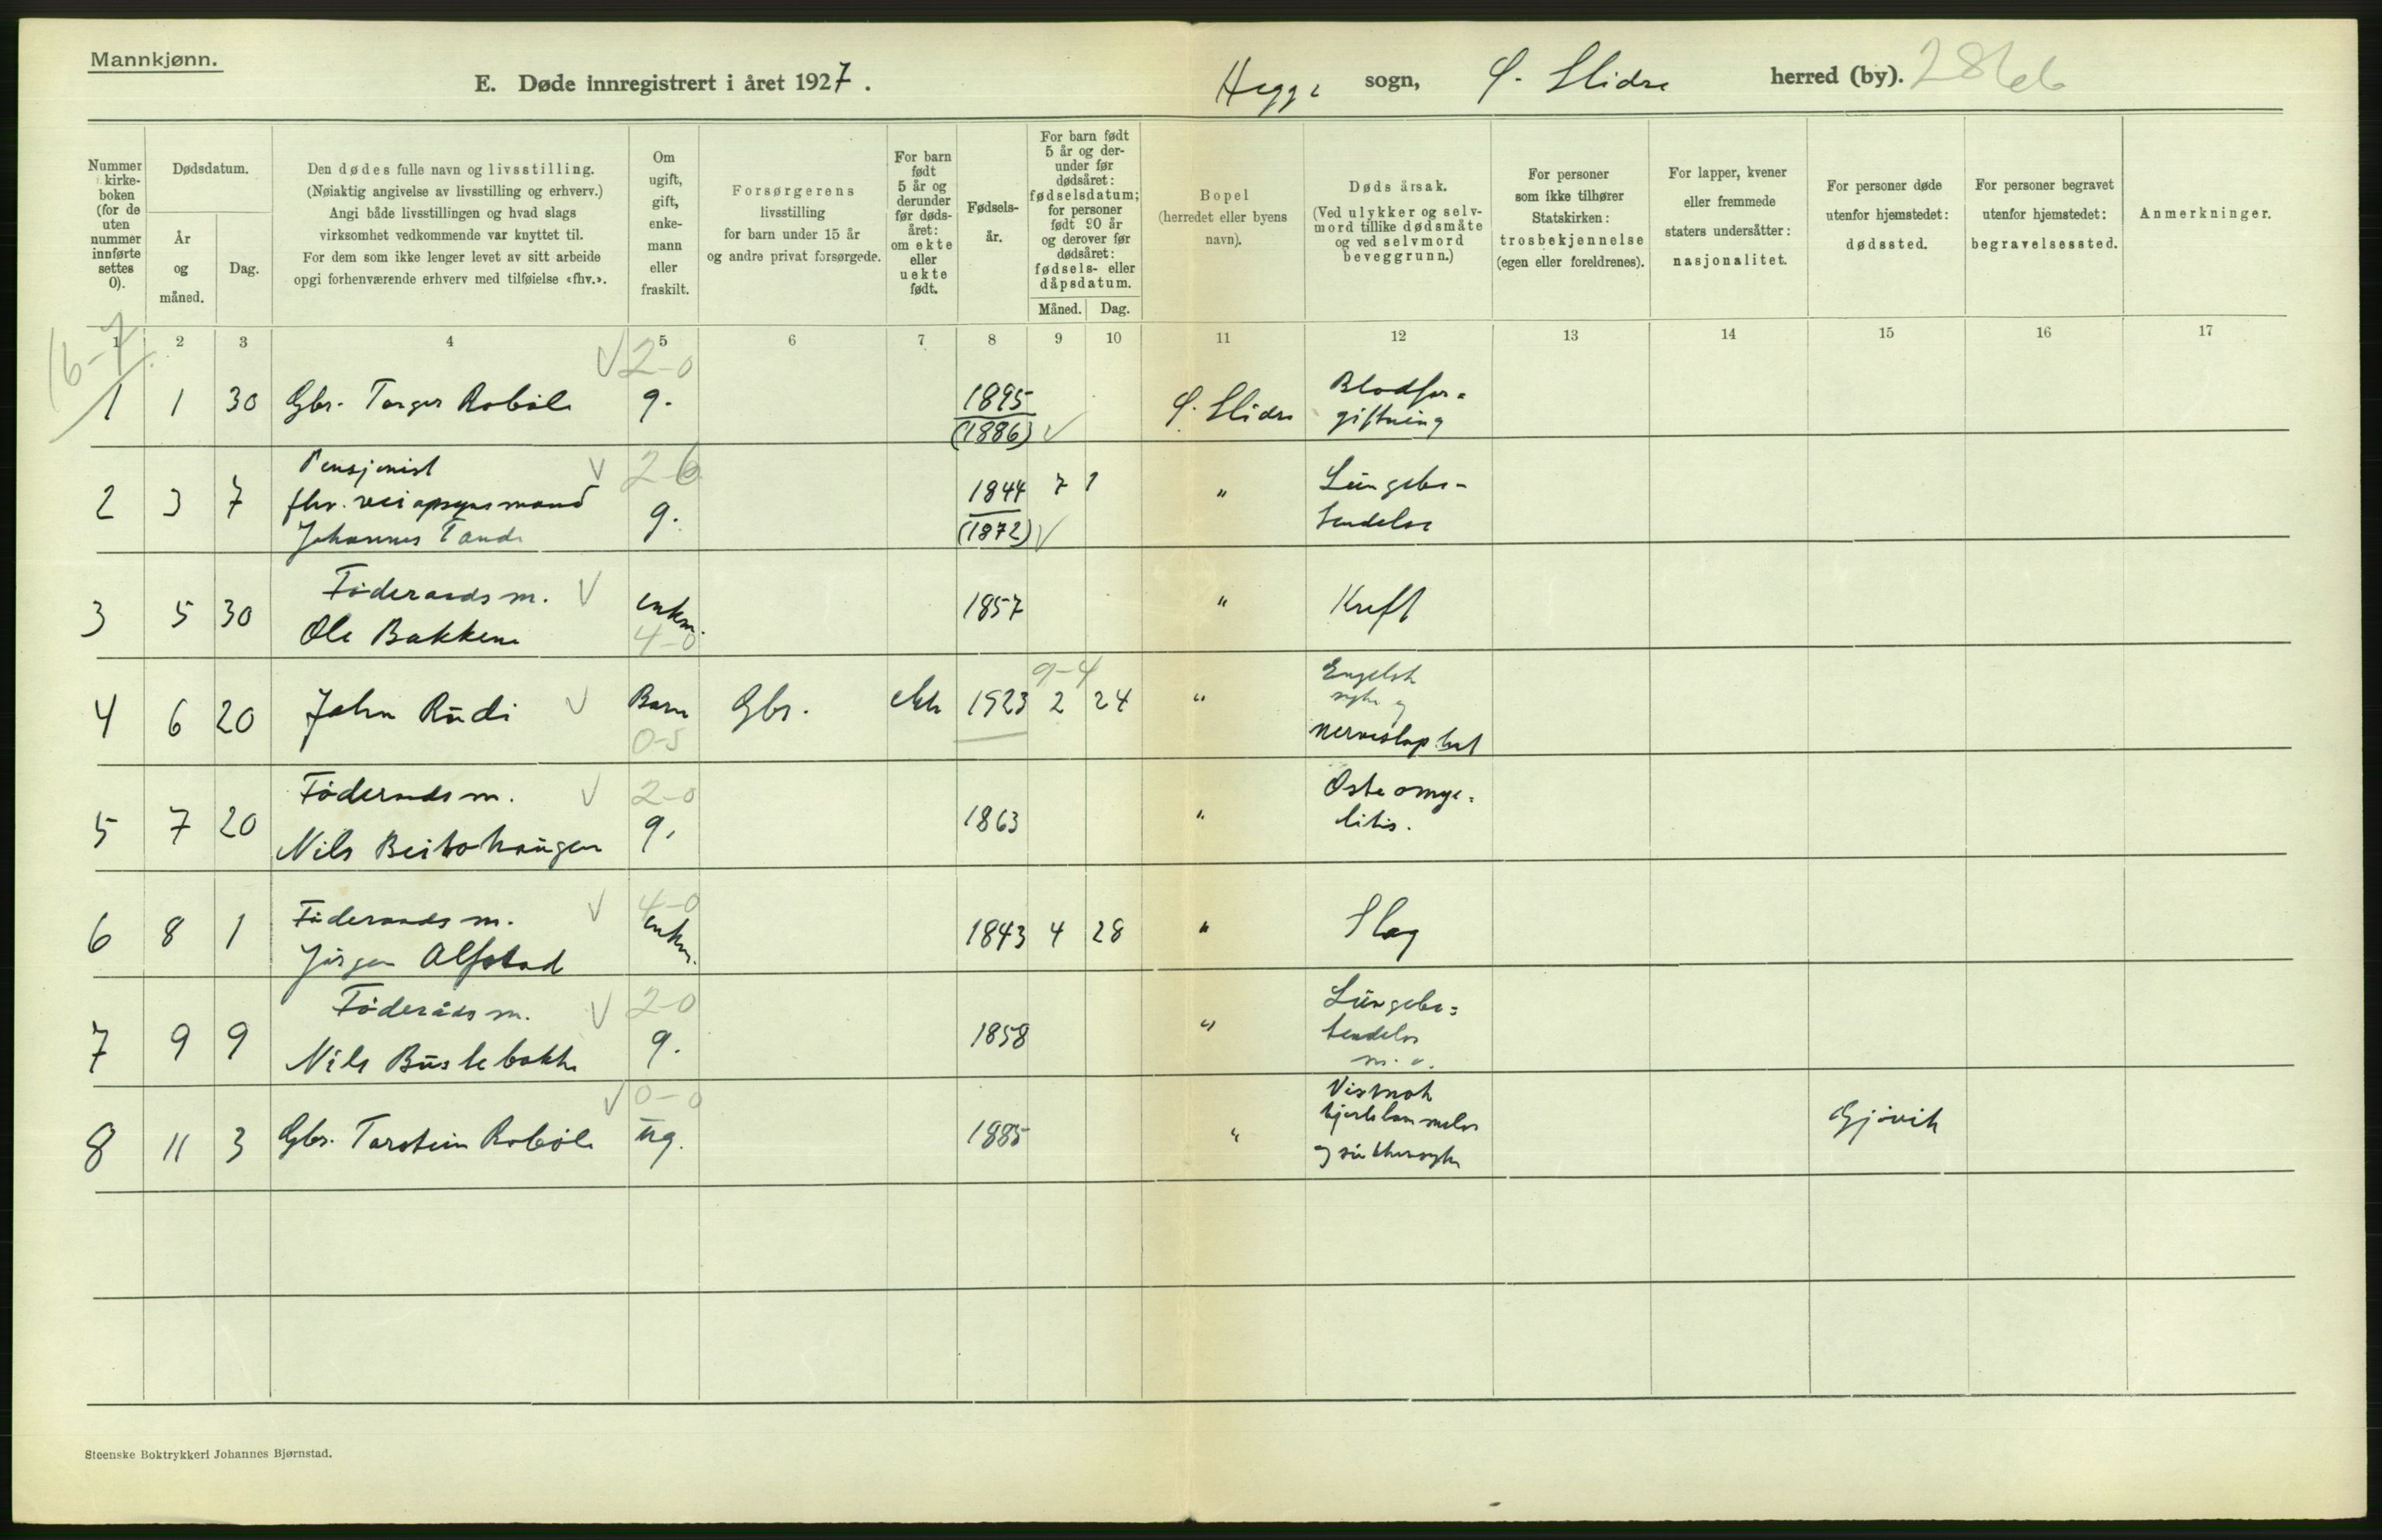 Mannkjønn.
E. Døde innregistrert i året 1927.
Hegge sogn, Ø. Slidre herred (by).
Nummer i kirke-boken (for de uten nummer innførte settes 0).
Dødsdatum.
År og måned.
Dag.
Den dødes fulle navn og livsstilling.
(Nøiaktig angivelse av livsstilling og erhverv.)
Angi både livsstillingen og hvad slags
virksomhet vedkommende var knyttet til.
For dem som ikke lenger levet av sitt arbeide
opgi forhenværende erhverv med tilføielse «fhv.».
Om ugift, gift, enke-mann eller fraskilt.
Forsørgerens
livsstilling
for barn under 15 år
og andre privat forsørgede.
For barn født 5 år og derunder før døds-året: om ekte eller uekte født.
Fødsels-år.
For barn født 5 år og der-under før dødsåret: fødselsdatum; for personer født 90 år og derover før dødsåret: fødsels- eller dåpsdatum.
Måned.
Dag.
Bopel
(herredet eller byens
navn).
Døds årsak.
(Ved ulykker og selv-
mord tillike dødsmåte
og ved selvmord
beveggrunn.)
For personer
som ikke tilhører
Statskirken:
trosbekjennelse
(egen eller foreldrenes).
For lapper, kvener
eller fremmede
staters undersåtter:
nasjonalitet.
For personer døde
utenfor hjemstedet:
dødssted.
For personer begravet
utenfor hjemstedet:
begravelsessted.
Anmerkninger.
1 2 3 4 5 6 7 8 9 10 11 12 13 14 15 16 17
16-7
2-0
1 1 30 Gbr. Torger Robøle g. 1895 (1886) Ø. Slidre Blodfor=
giftning
Pensjonist 2-6
2 3 7 fhv. veiopsynsmand g. 1844 7 1 " Lungebe-
Johannes Tande (1872) tendelse
3 5 30 Føderaads m. enkm. 1857 " Kreft
Ole Bakkene 4-0
9-4
4 6 20 John Rudi Barn Gbr. ekte 1923 2 24 " Engelsk
syke og
0-5 nerveslaphet
Føderaads m. 2-0
5 7 20 Nils Beitohaugen g. 1863 " Osteomye=
litis.
4-0
6 8 1 Føderaads m. enkm. 1843 4 28 " Slag
Jørgen Alfstad
Føderåds m. 2-0
7 9 9 Nils Buslebakke g. 1858 " Lungebe=
tendelse
m. v.
0-0
8 11 3 Gbr. Torstein Robøle ug. 1885 " Vistnok
hjertelammelse
og sukkersyke Gjøvik
Steenske Boktrykkeri Johannes Bjørnstad.